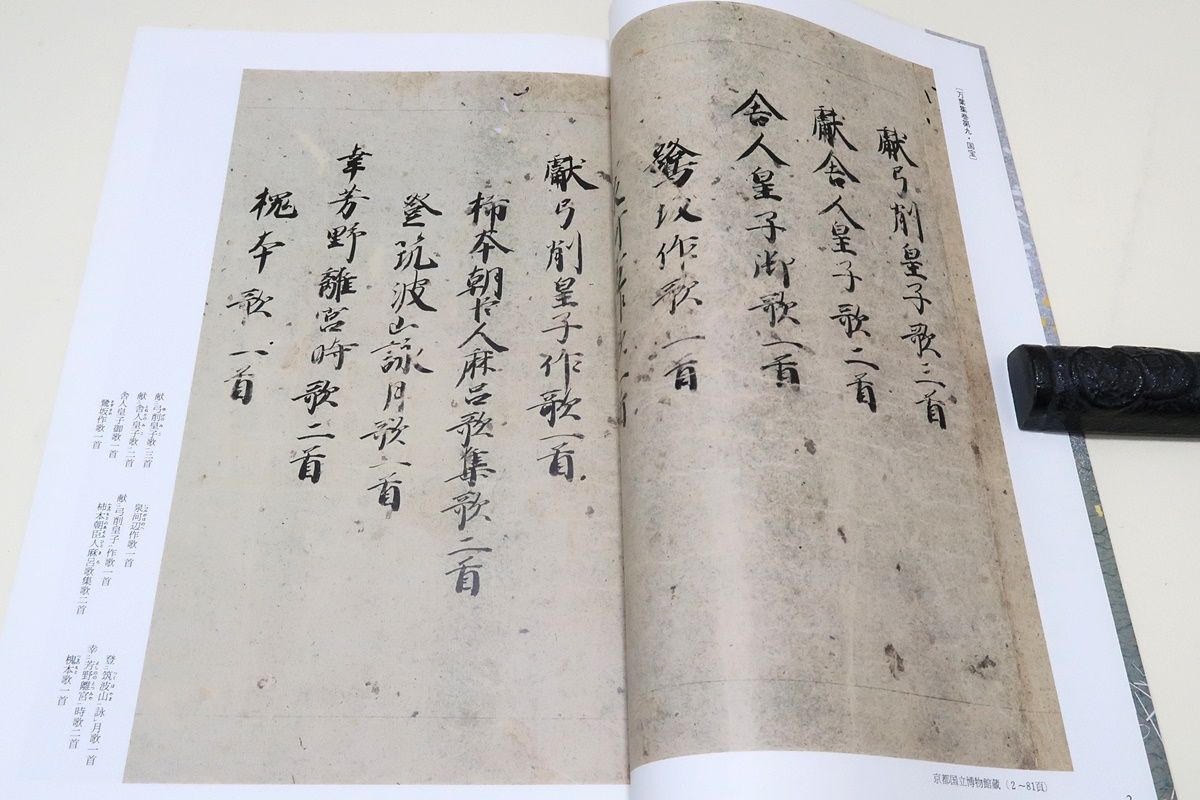 〔万葉集巻第九・国宝〕
獻弓削皇子歌三首
獻舎人皇子歌二首
舎人皇子御歌一首
鷺坂作歌一首
獻弓削皇子作歌一首
柿本朝臣人麻呂歌集歌二首
登筑波山詠月歌一首
幸芳野離宮時歌二首
槐本歌一首
献弓削皇子歌三首
献舎人皇子歌二首
舎人皇子御歌一首
鷺坂作歌一首
泉河辺作歌一首
献弓削皇子作歌一首
柿本朝臣人麻呂歌集歌二首
登筑波山詠月歌一首
幸芳野離宮時歌二首
槐本歌一首
京都国立博物館蔵（2〜81頁）